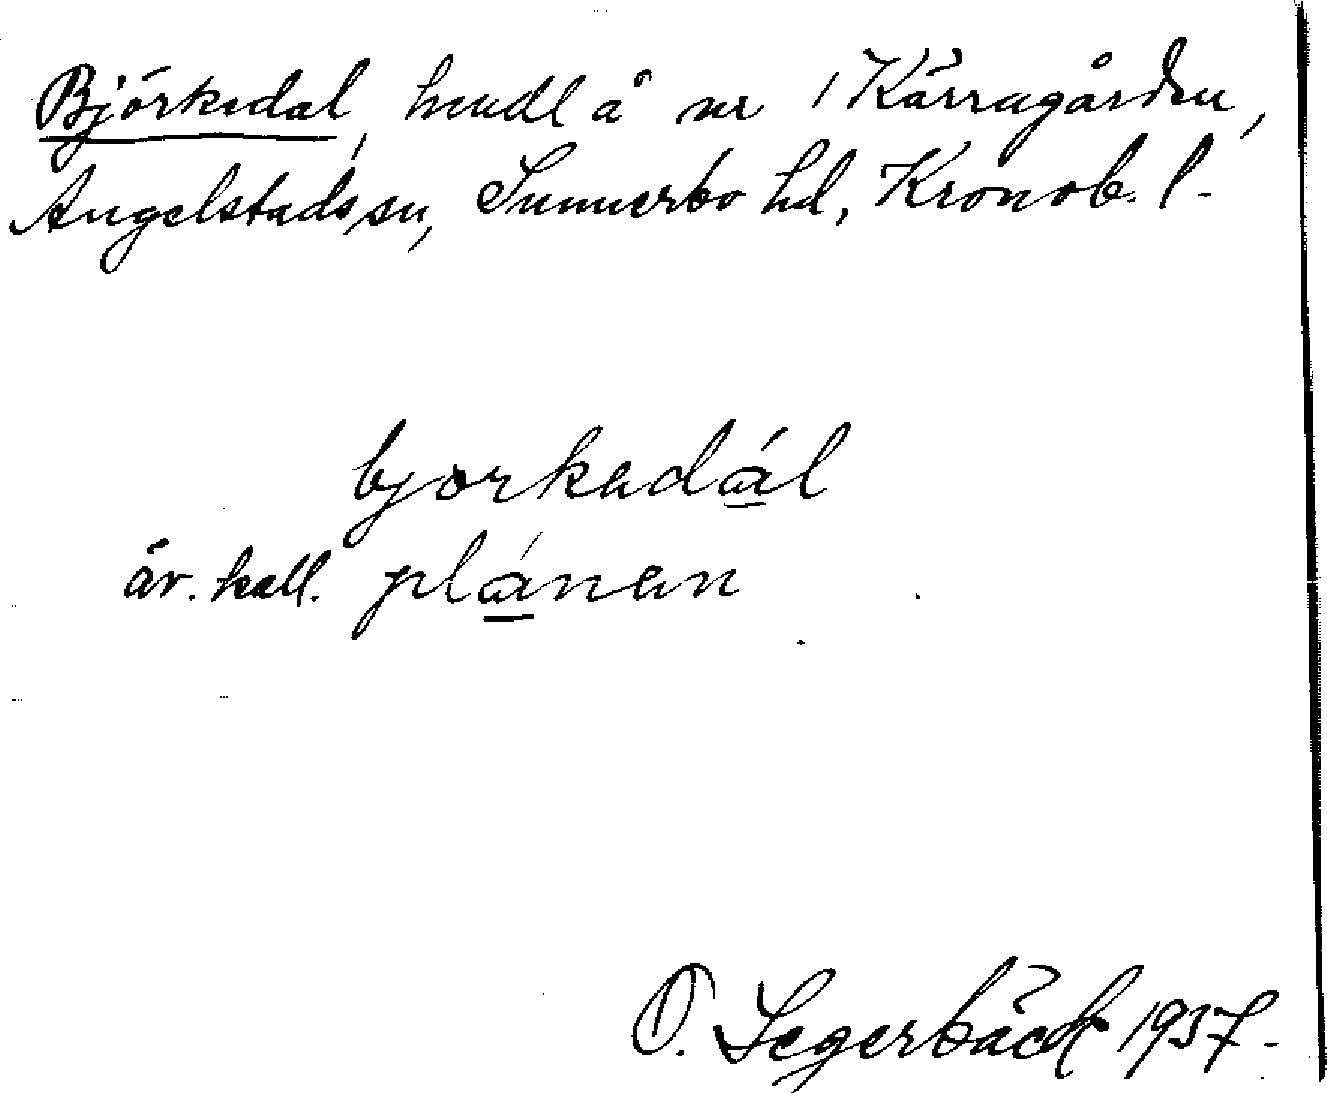 Björkedal, hmdl å nr 1 Kärragården,
Angelstads sn, Sunnerbo hd, Kronob. l.
bjorkadál
äv. kall. plánen
O. Segerbäck 1937.